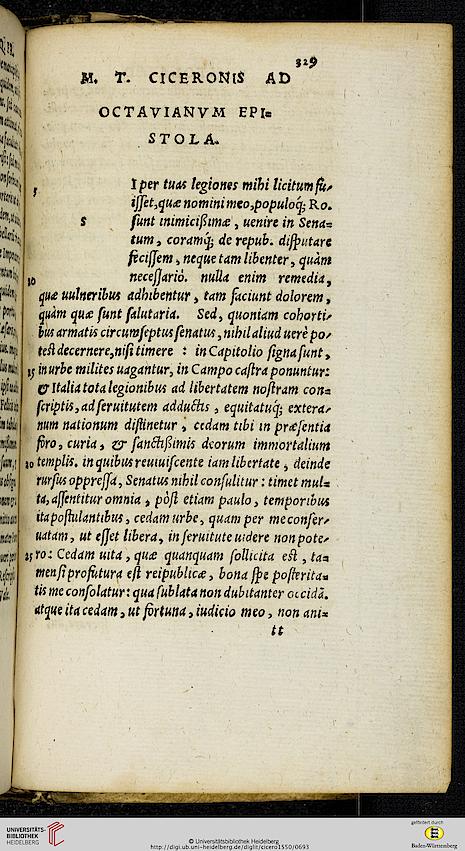 329
M. T. CICERONIS AD
OCTAVIANVM EPI=
STOLA.
5 I per tuas legiones mihi licitum fu-
isset, quæ nomini meo, populoq́; Ro.
s sunt inimicißimæ, uenire in Sena=
tum, coramq́; de repub. disputare
fecissem, neque tam libenter, quàm
10 necessariò. nulla enim remedia,
quæ uulneribus adhibentur, tam faciunt dolorem,
quàm quæ sunt salutaria. Sed, quoniam cohorti-
bus armatis circumseptus senatus, nihil aliud uerè po-
test decernere, nisi timere : in Capitolio signa sunt,
15 in urbe milites uagantur, in Campo castra ponuntur:
& Italia tota legionibus ad libertatem nostram con=
scriptis, ad seruitutem adductis, equitatuq́; extera-
rum nationum distinetur, cedam tibi in præsentia
foro, curia, & sanctißimis deorum immortalium
20 templis. in quibus reuiuiscente iam libertate, deinde
rursus oppressa, Senatus nihil consulitur : timet mul=
ta, assentitur omnia, pòst etiam paulo, temporibus
ita postulantibus, cedam urbe, quam per me conser-
uatam, ut esset libera, in seruitute uidere non pote-
25 ro: Cedam uita, quæ quanquam sollicita est, ta=
men si profutura est reipublicæ, bona spe posterita=
tis me consolatur: qua sublata non dubitanter occidã.
atque ita cedam, ut fortuna, iudicio meo, non ani=
tt
UNIVERSITÄTS-
BIBLIOTHEK
HEIDELBERG
© Universitätsbibliothek Heidelberg
http://digi.ub.uni-heidelberg.de/diglit/cicero1550/0693
gefördert durch
Baden-Württemberg